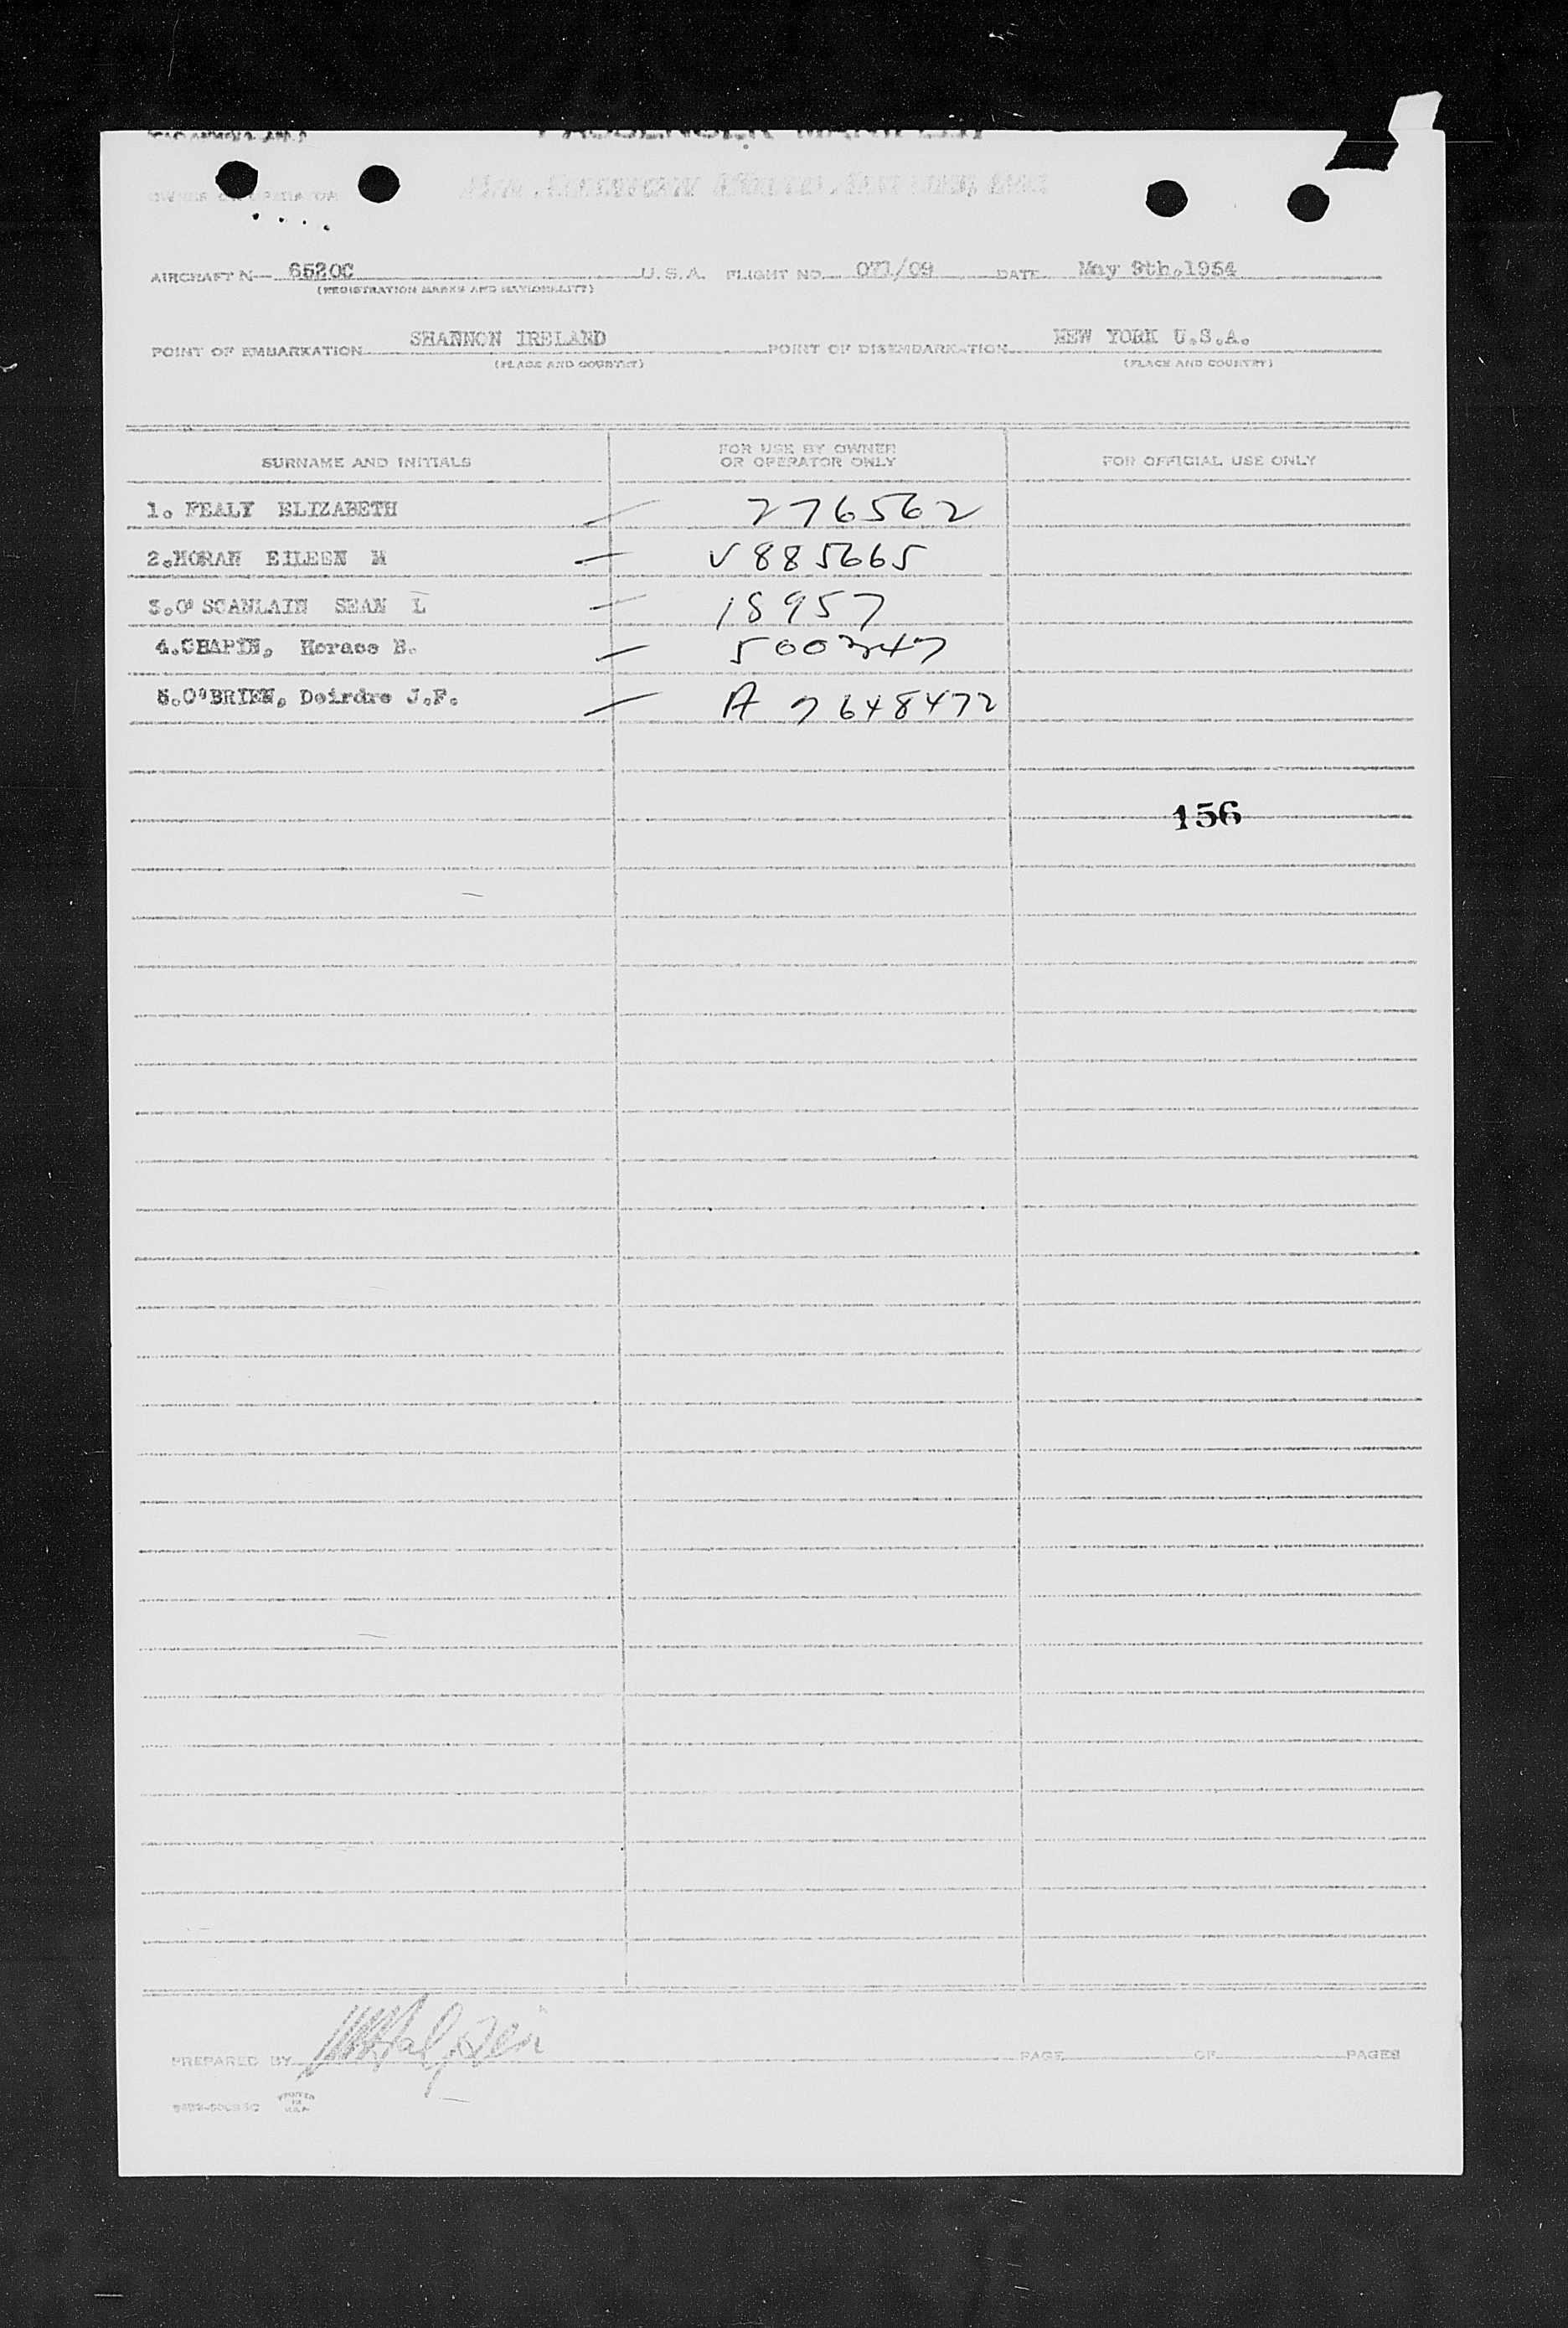 PASSENGER MANIFEST
OWNER OR OPERATOR
PAN AMERICAN WORLD AIRWAYS, INC.
AIRCRAFT N— 6520C U.S.A. FLIGHT NO. 071/09 DATE May 9th,1954
(REGISTRATION MARKS AND NATIONALITY)
POINT OF EMBARKATION SHANNON IRELAND POINT OF DISEMBARKATION NEW YORK U.S.A.
(PLACE AND COUNTRY) (PLACE AND COUNTRY)
SURNAME AND INITIALS FOR USE BY OWNER OR OPERATOR ONLY FOR OFFICIAL USE ONLY
1. FEALY ELIZABETH — 276562
2.HORAN EILEEN M — V885665
3.O'SCANLAIN SEAN L — 18957
4.CHAPIN, Horace B. — 500347
5.O'BRIEN, Deirdre J.F. — A 7648472
156
PREPARED BY PAGE OF PAGES
PRINTED IN U.S.A.